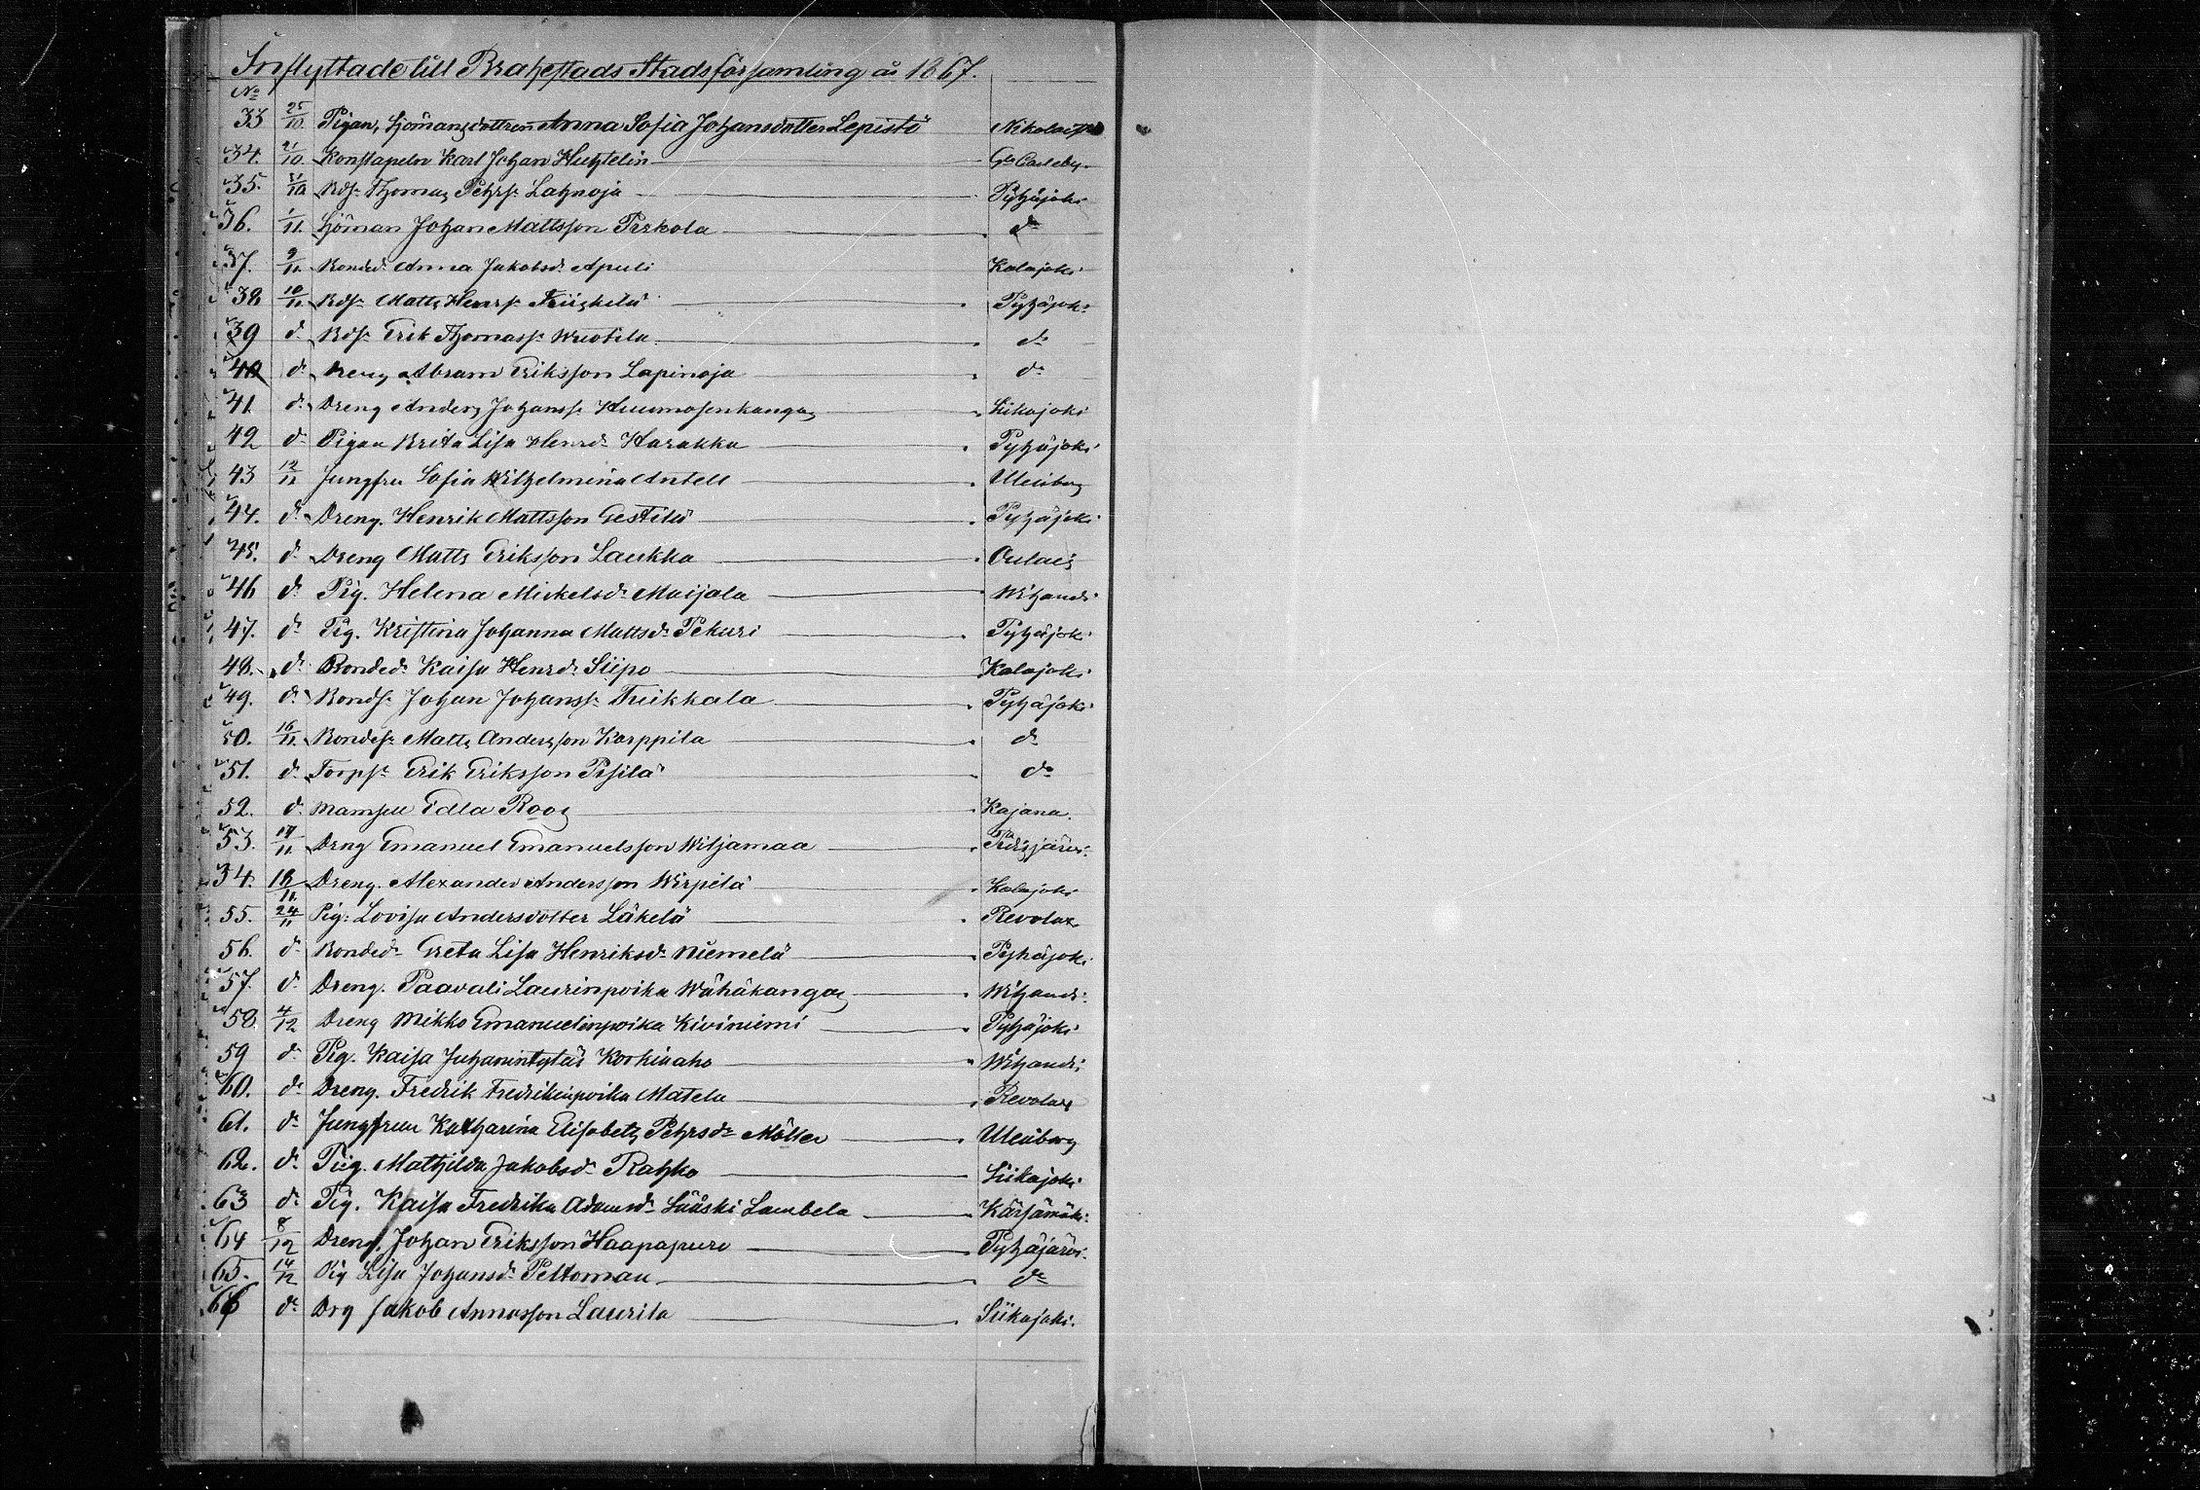 Inflyttade till Brahestads Stadsförsamling år 1867.
No
33 25/10 Pigan, Sjömansdottren Anna Sofia Johansdotter Lepistö Nikolaist
34. 21/10 Konstapeln Karl Johan Huhtelin Gla Carleby
35. 31/10 Bds. Thomas Pehrs. Lahnoja Pyhäjoki
36. 1/11. Sjöman Johan Mattsson Pirkola do
37. 9/11. Bonded. Anna Jakobsd. Apuli Kalajoki
38 10/11. Bds. Matts Henrs. Pyhäjoki
39 do Bds. Erik Thomass. Wuotila do
40 do Dreng Abram Eriksson Lapinoja do
41. do Dreng Anders Johanss. Huumosenkangas Siikajoki
42 do Pigan Brita Lisa Henrsd. Harakka Pyhäjoki
43 12/11 Jungfru Sofia Wilhelmina Antell Uleåborg
44. do Dreng. Henrik Mattsson Gestilä Pyhäjoki
45. do Dreng Matts Eriksson Laukka Oulais
46 do Pig. Helena Mickelsd. Maijala Wihandi
47. do Pig. Kristina Johanna Mattsd. Pekuri Pyhäjoki
48. do Bonded. Kaisa Henrsd. Siipo Kalajoki
49. do Bonds. Johan Johanss. Tuikkala Pyhäjoki
50. 16/11. Bondes. Matts Andersson Karppila do
51. do Torps. Erik Eriksson Pisilä do
52. do Mamsell Edla Roos Kajana.
53. 17/11. Drng Emanuel Emanuelsson Wiljamaa Pidisjärvi.
34. 18/11. Dreng. Alexander Andersson Wirpilä Kalajoki
55. 24/11 Pig. Lovisa Andersdotter Läkelä Revolax
56. do Bonded. Greta Lisa Henriksd. Niemelä Pyhäjoki
57. do Dreng. Paavali Laurinpoika Wähäkangas Wihandi.
58. 4/12 Dreng Mikko Emanuelinpoika Kiviniemi Pyhäjoki
59 do Pig. Kaisa Juhanintytär Korkiaaho Wihandi
60. do Dreng. Fredrik Fredrikinpoika Matela Revolax
61. do Jungfrun Katharina Elisabeth Pehrsdr. Möller Uleåborg
62. do Pig. Mathilda Jakobsd. Rahko Siikajoki
63 do Pig. Kaisa Fredrika Adamsd. Sääski Lambela Kärsämäki.
64 8/12 Dreng. Johan Eriksson Haapapuro Pyhäjärvi.
65. 14/12 Pig Lisa Johansd. Peltomaa do
66 do Drg Jakob Annasson Laurila Siikajoki.